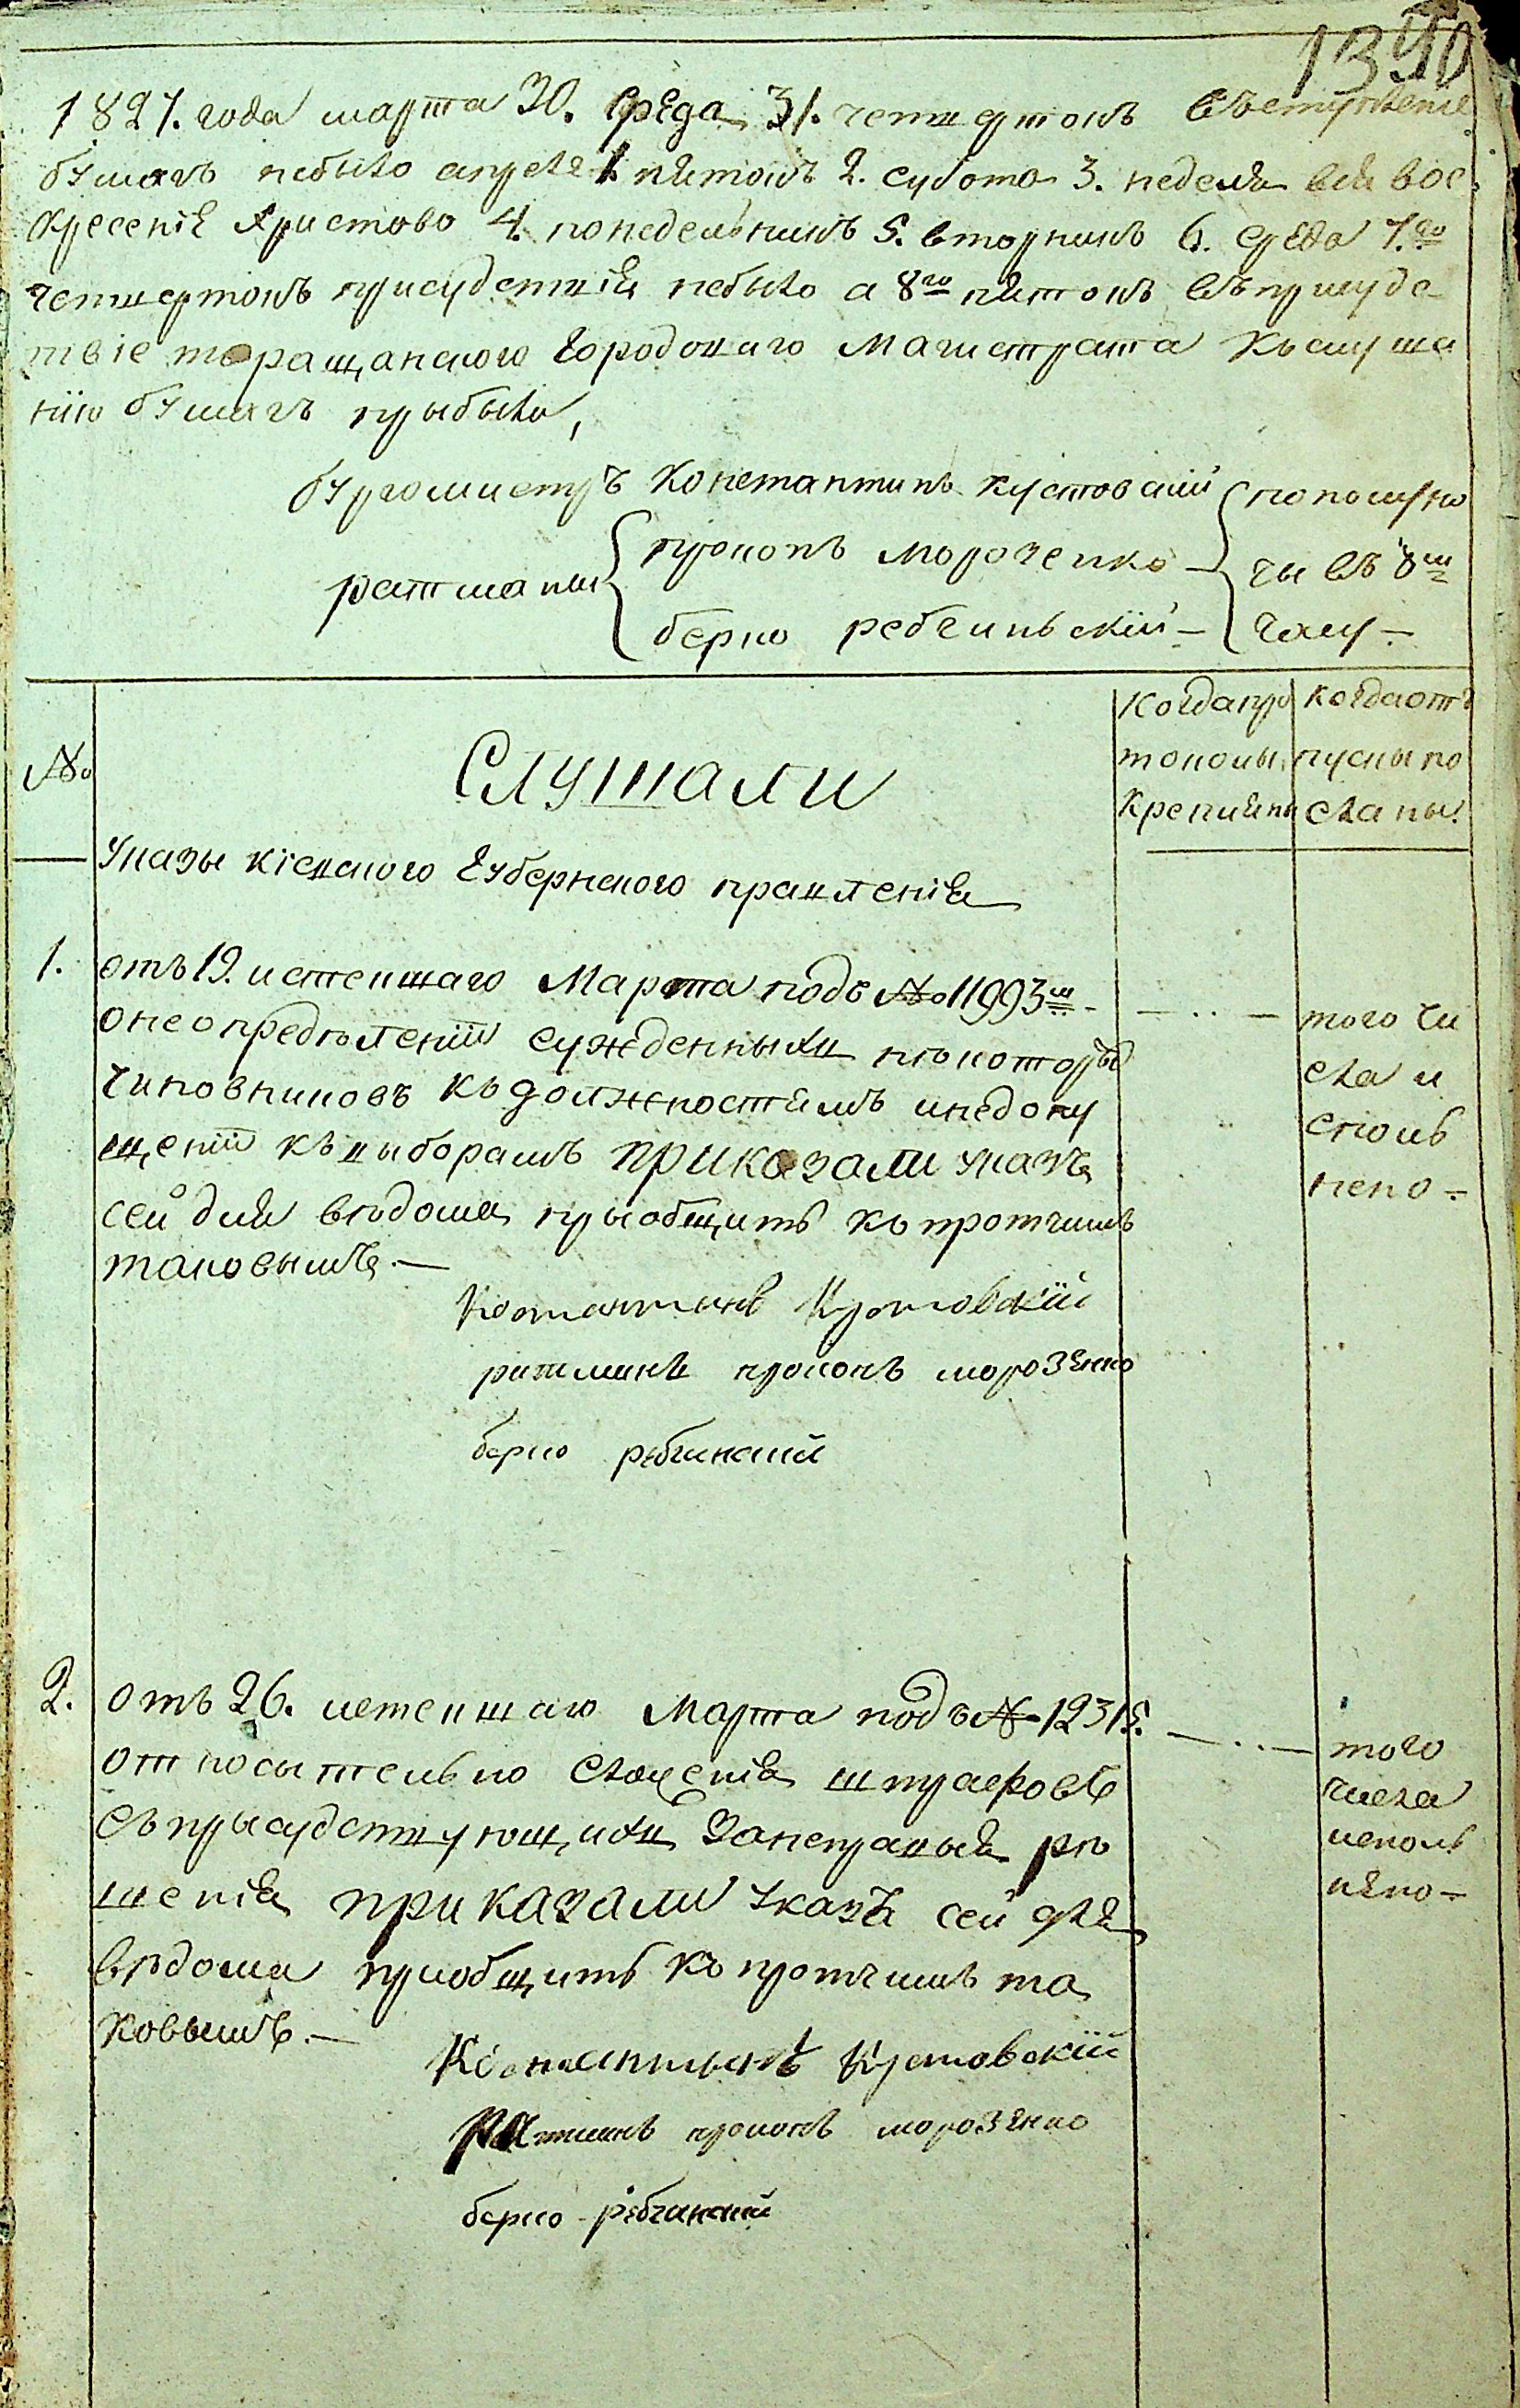 1827. года марта 30. среда 31. четвертокъ въвступленіе
бумагъ небыло апреля 1. пятокъ 2. субота 3. неделя вся вос
кресеніе христово 4. понедельникъ 5. вторникъ 6. среда 7.го
четвертокъ присудствія небыло а 8го пятокъ въприсудс
твіе таращанского Городоваго Магистрата къслуша
нію бумагъ прыбыли,
бургомистръ Констаннтинъ крстовскій
ратманы
прокопъ морозенко
берко ребчинъскій
пополуно
чы въ 8м
часу
№
Слушали
Когдапро
токолы
Крепляны
Когдаотъ
пускы по
сланы.
Указы кіевского Губернского правленія
1.
отъ 19. истекшаго Марта подъ №11993м
онеопредѣленіи сужденныхъ нѣкоторы
чиновниковъ къ должностямъ инедопу
щеніи къвыборамъ приказали указъ
сей для вѣдома прыобщить къпротчимъ
таковымъ.
того чи
сла и
сполъ
нено
Костантынъ Крстовскій
ратманъ прокопъ морозенко
берко рѣбчинский
2.
отъ 26. истекшаго Марта подъ № 12315.
относытельно сложенія штрафовъ
съпрысудствующихъ занеправыя рѣ
шенія приказали указъ сей для
вѣдома приобщить къпротчимъ та
ковымъ.
того
числа
исполъ
нено
Констнтынъ Крстовскій
Ратманъ прокопъ морозенко
берко рѣбчинский